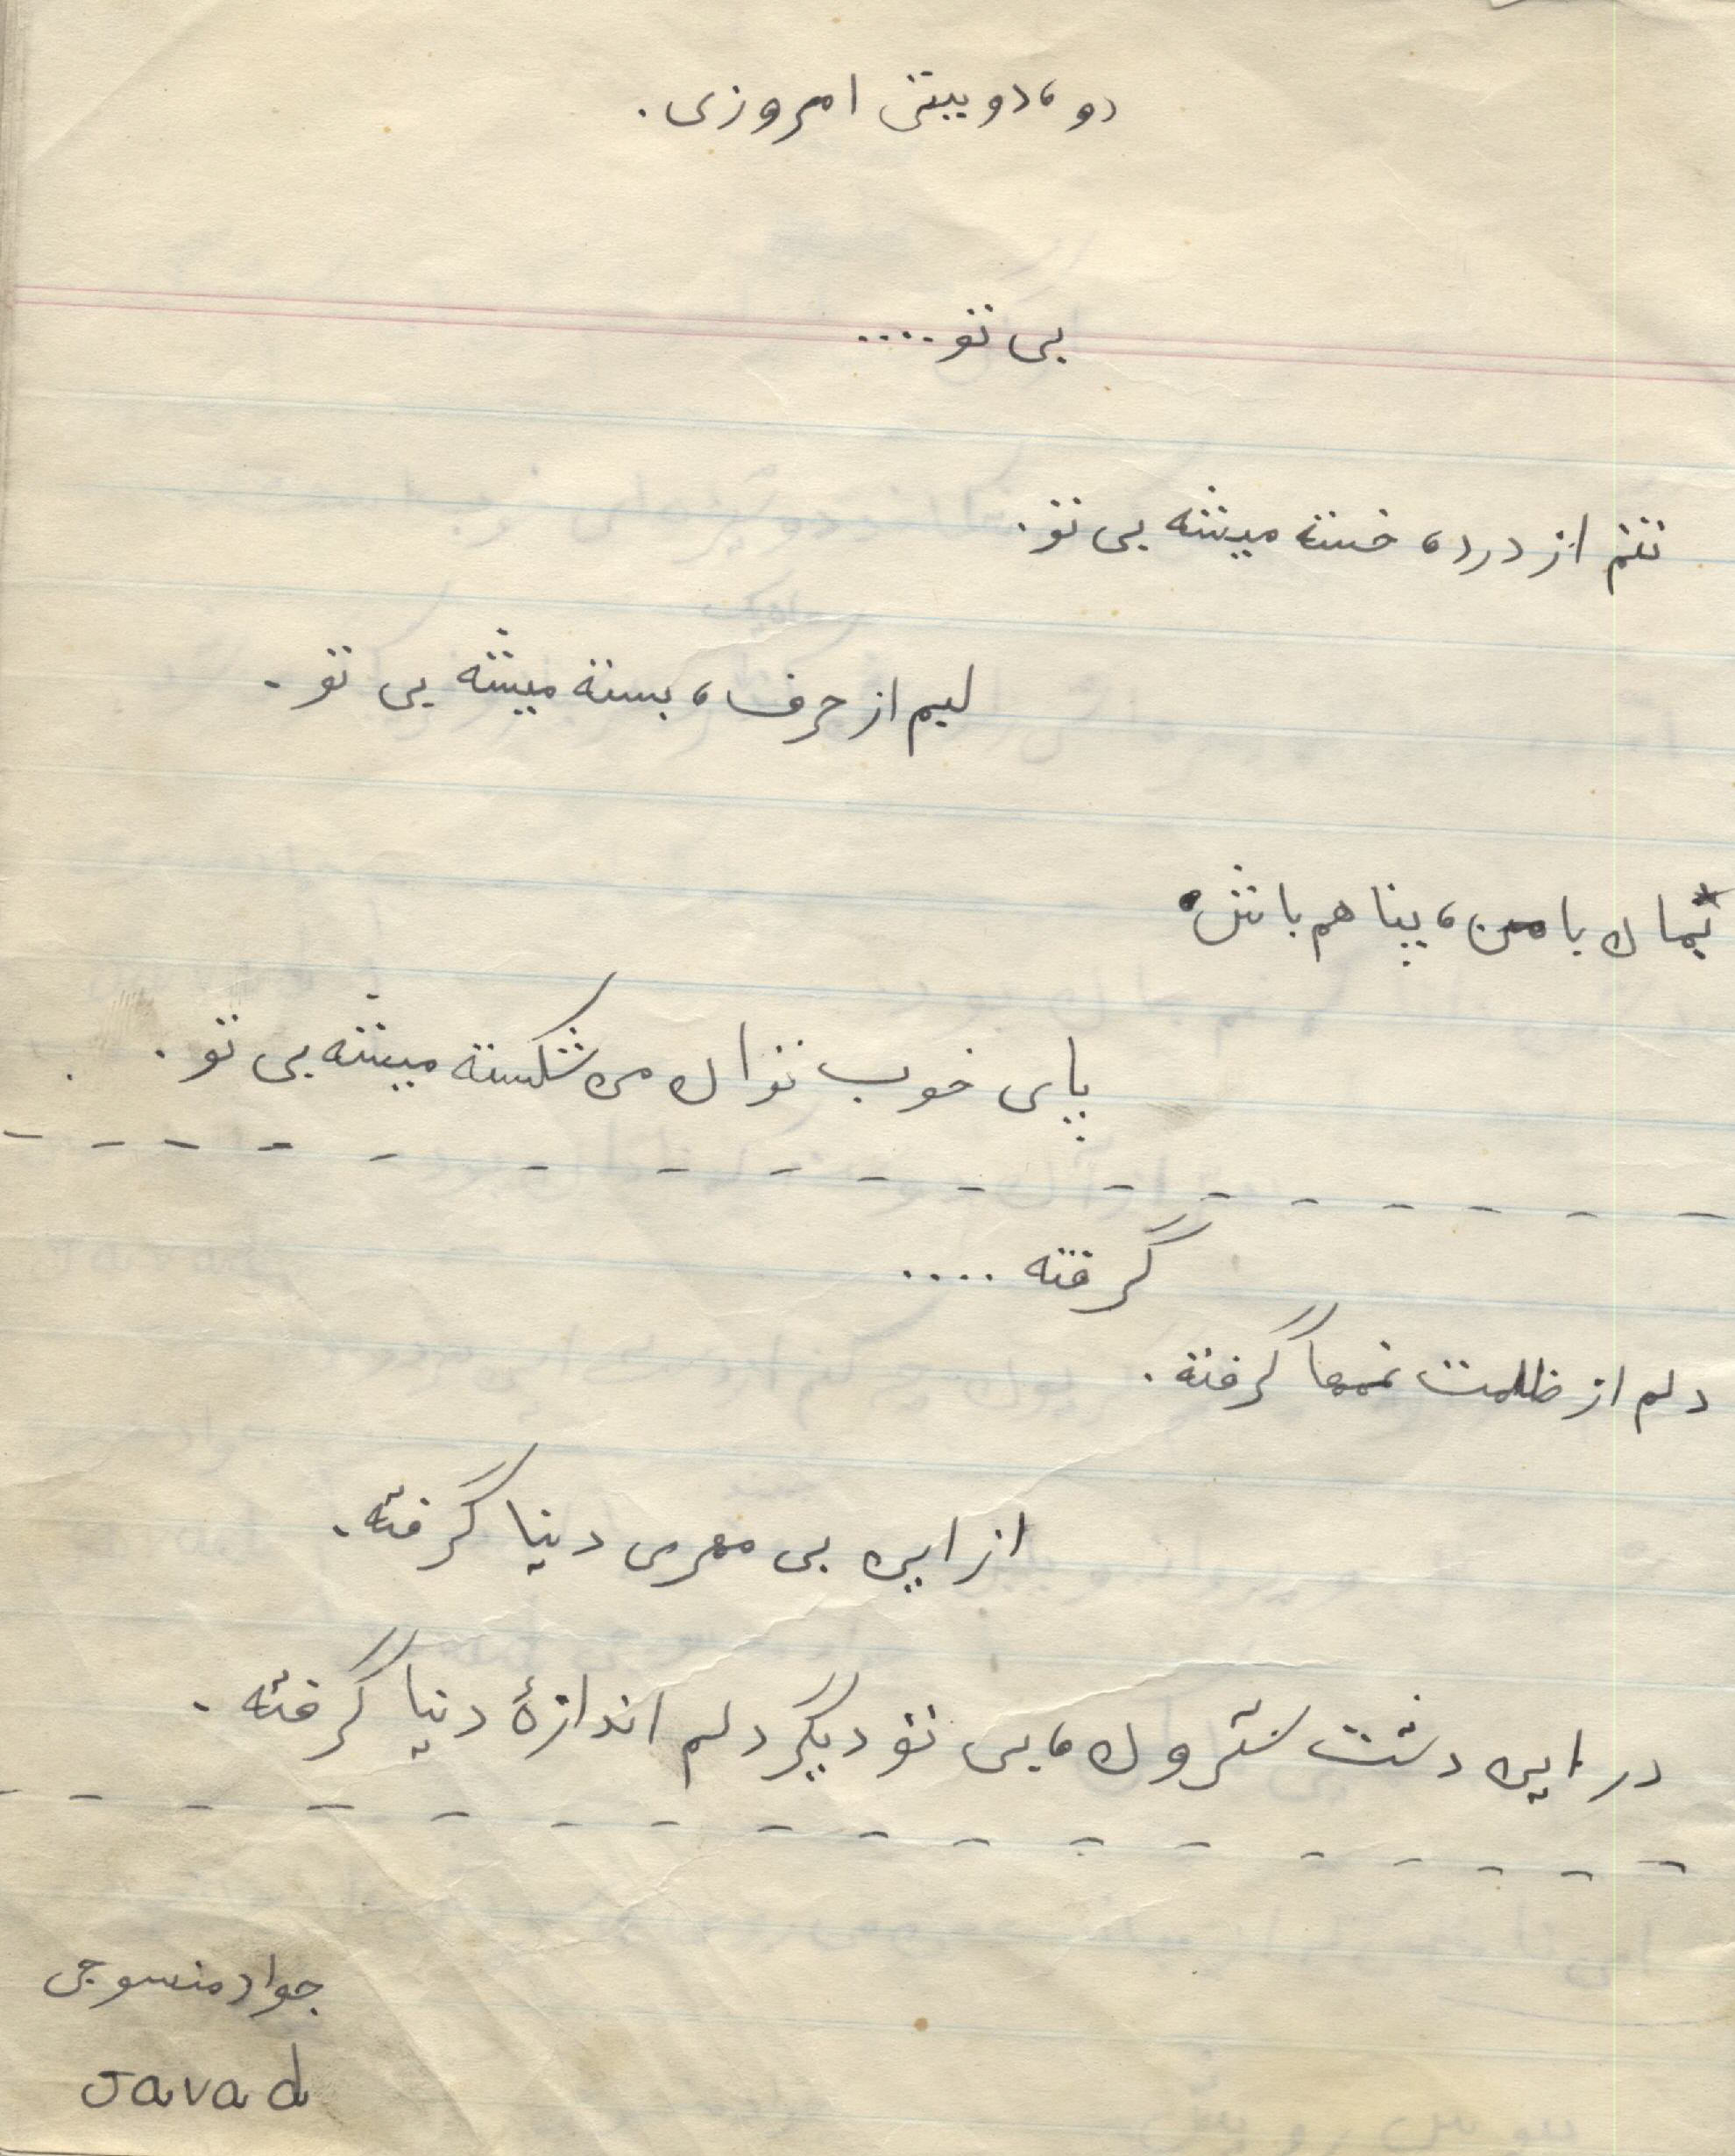 دو، دوبیتی امروزی.
بی تو....
تنم از درد، خسته میشه بی تو.
لبم از حرف، بسته میشه بی تو.
بمان با من، پناهم باش
پای خوب توان من شکسته میشه بی تو.
گرفته ....
دلم از ظلمت غمها گرفته.
از این بی مهری دنیا گرفته.
در این دشت سترون، بی تو دیگر دلم اندازهٔ دنیا گرفته.
جواد منسوجی
Javad